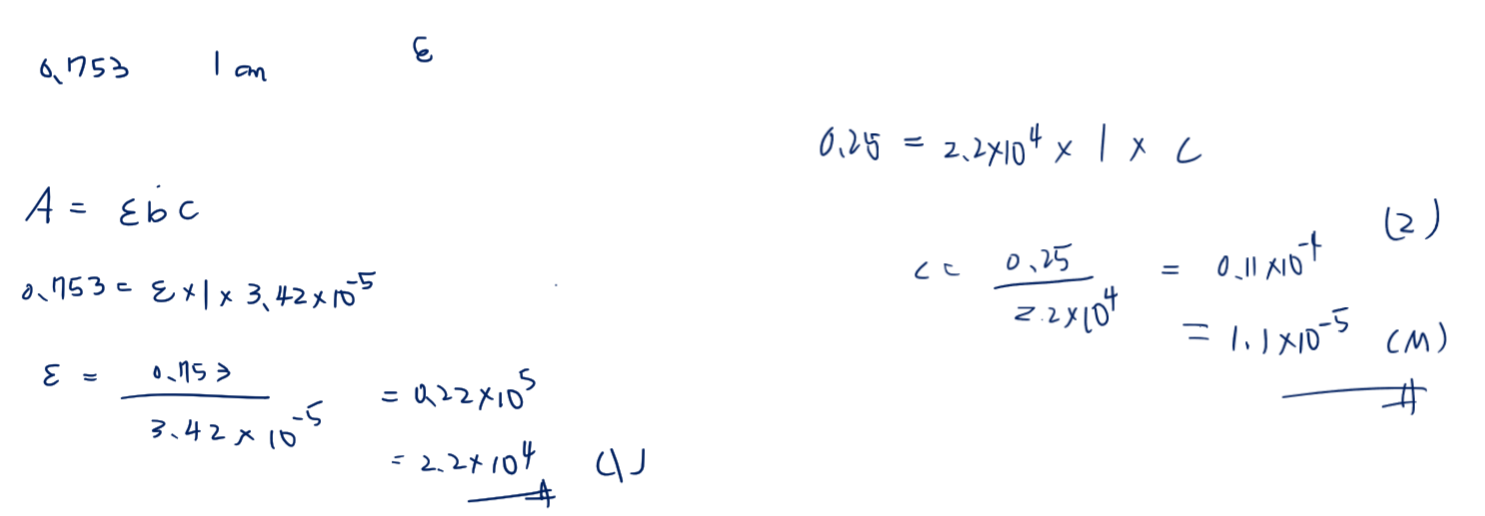 0.753 1 cm ε
A = εbc
0.753 = ε×1×3.42×10⁻⁵
ε = 0.753 / 3.42×10⁻⁵ = 0.22×10⁵
= 2.2×10⁴ (1)
0.25 = 2.2×10⁴ × 1 × c
c = 0.25 / 2.2×10⁴ = 0.11×10⁻⁴ (2)
= 1.1×10⁻⁵ (M)